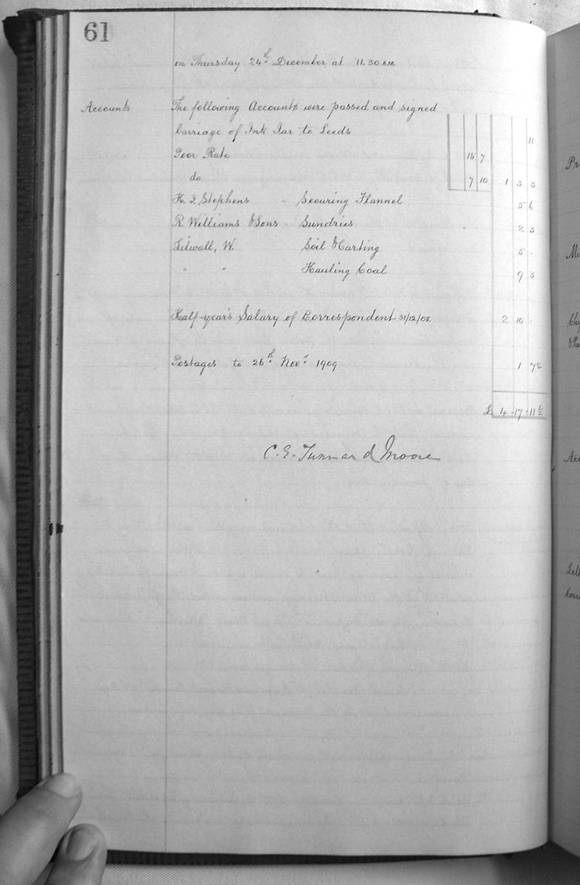 61
on Thursday 24th December at 11.30 AM
Accounts The following Accounts were passed and signed
Carriage of Ink Jar to Leeds 11
Poor Rate 15 7
do 7 10 1 3 5
H. J. Stephens - Scouring Flannel 5 6
R. Williams & Sons - Sundries 2 3
W. Soil & Carting 5 -
" " Hauling Coal 9 3
Half-year's Salary of Correspondent 31/12/08 2 10
Postages to 26th Novr 1909 1 7½
£ 4-17-11½
C. E. Tunnard Moore